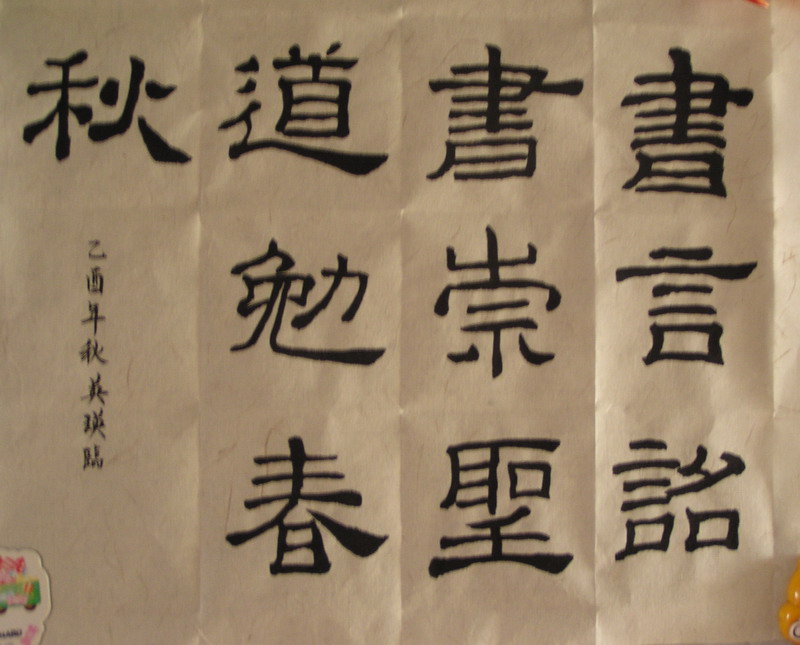 書言詔
書崇聖
道勉春
秋
乙酉年秋英瑛臨